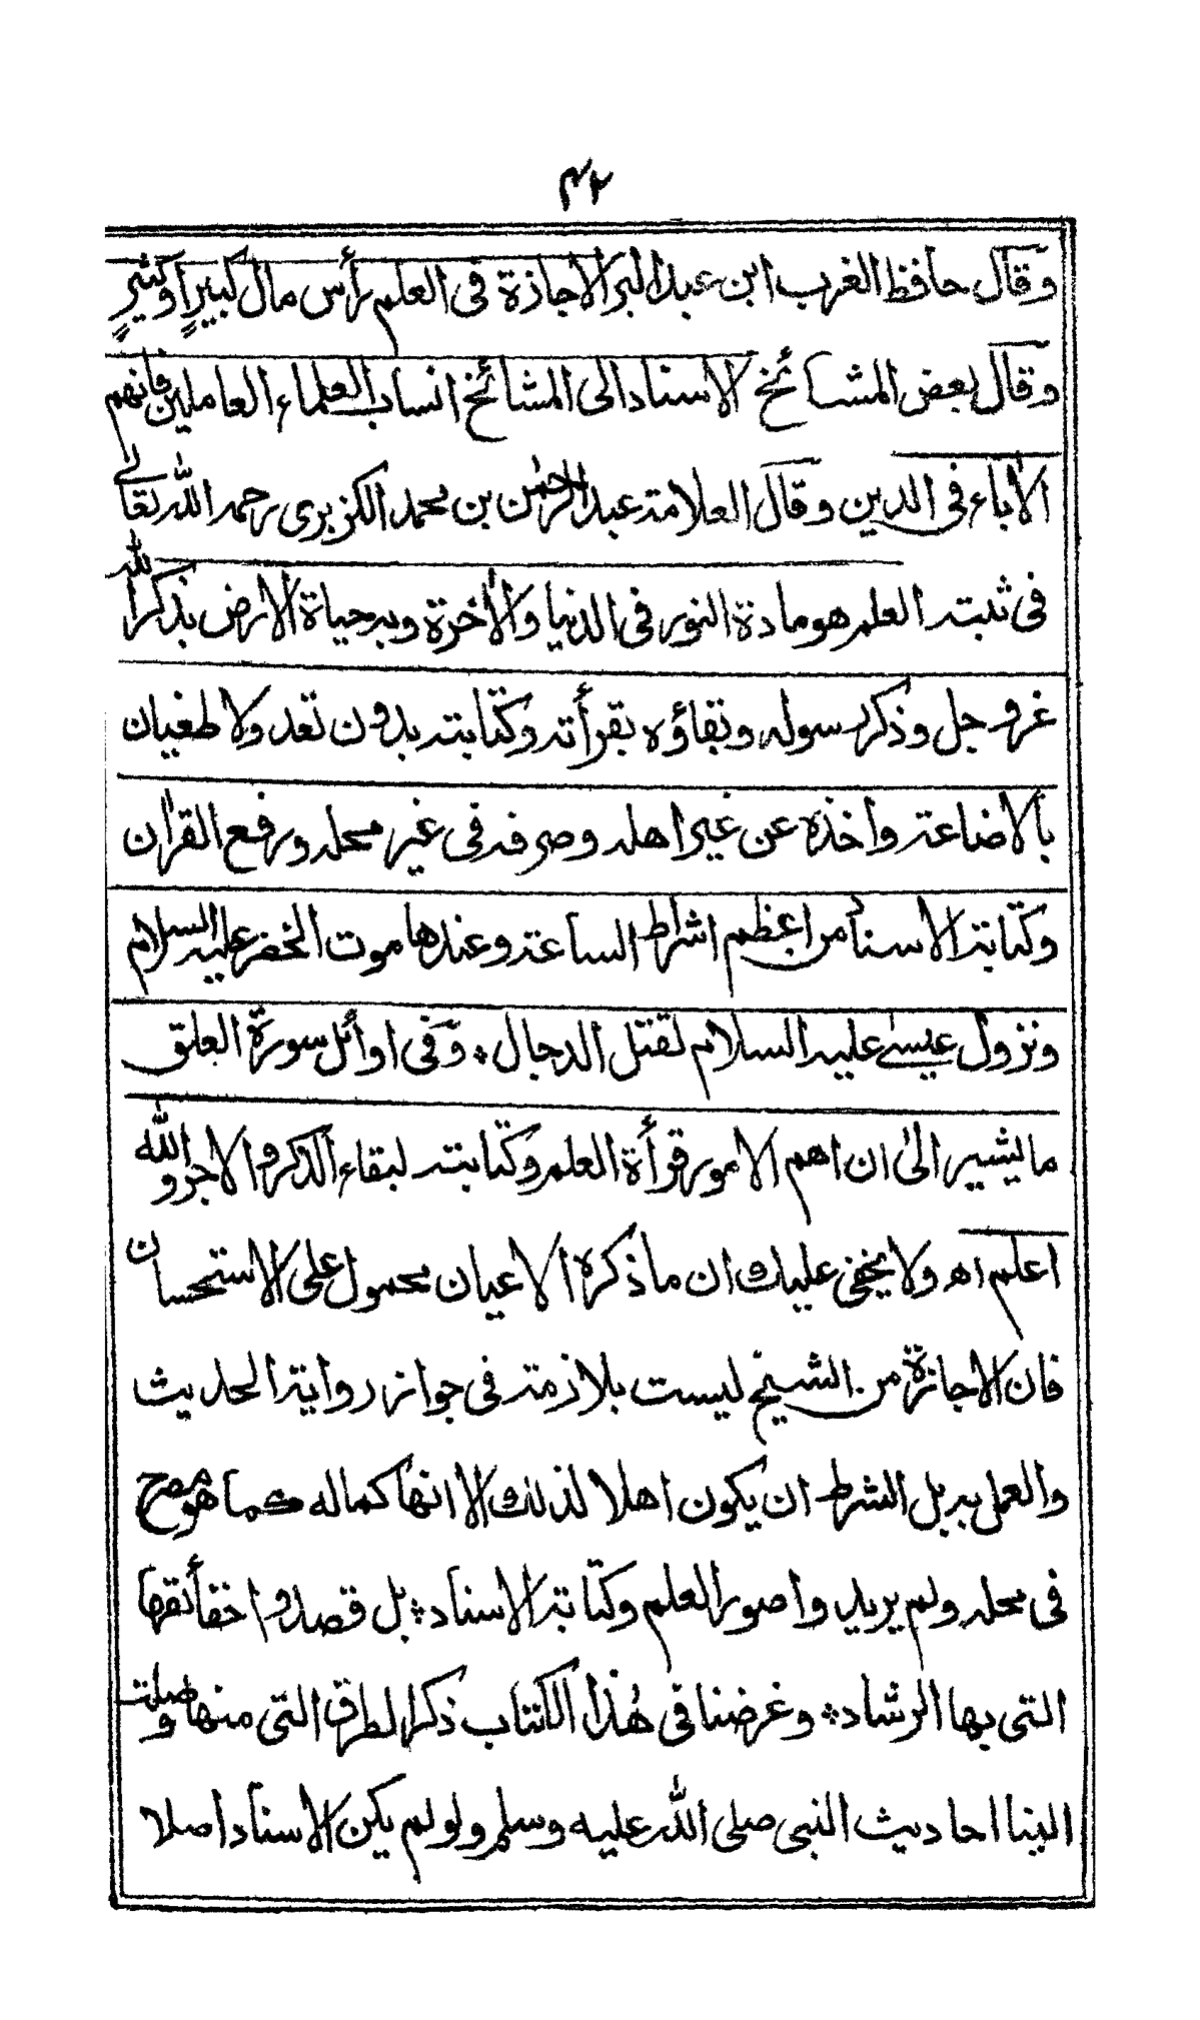 ٤٢
وقال حافظ الغرب ابن عبد البر الاجازة فى العلم رأس مال كبير او كثير
وقال بعض المشائخ الاسناد الى المشائخ انساب العلماء العاملين فانهم
الاباء فى الدين وقال العلامة عبد الرحمٰن بن محمد الكزبرى رحمه الله تعالےٰ
فى ثبته العلم هو مادة النور فى الدنيا والأخرة وبه حياة الارض بذكر الله
عز وجل وذكر رسوله وبقاؤه بقرأته وكتابته بدون تعد ولا طغيان
بالاضاعة واخذه عن غير اهله وصرفه فى غير محله ورفع القران
وكتابة الاسناد من اعظم اشراط الساعة وعندها موت الخضر عليه السلام
ونزول عيسےٰ عليه السلام لقتل الدجال ؞ وفى اوائل سورة العلق
ما يشير الىٰ ان اهم الامور قرأة العلم وكتابته لبقاء الذكر والاجر والله
اعلم اه ولا يخفى عليك ان ما ذكره الاعيان محمول على الاستحسان
فان الاجازة من الشيخ ليست بلازمة فى جواز رواية الحديث
والعمل به بل الشرط ان يكون اهلا لذلك الا انها كماله كما هو مصرح
فى محله ولم يريدوا صور العلم وكتابة الاسناد ؞ بل قصدوا حقائقها
التى بها الرشاد ؞ وغرضنا فى هٰذا الكتاب ذكر الطرق التى منها وصلت
الينا احاديث النبى صلى الله عليه وسلم ولو لم يكن الاسناد اصلا